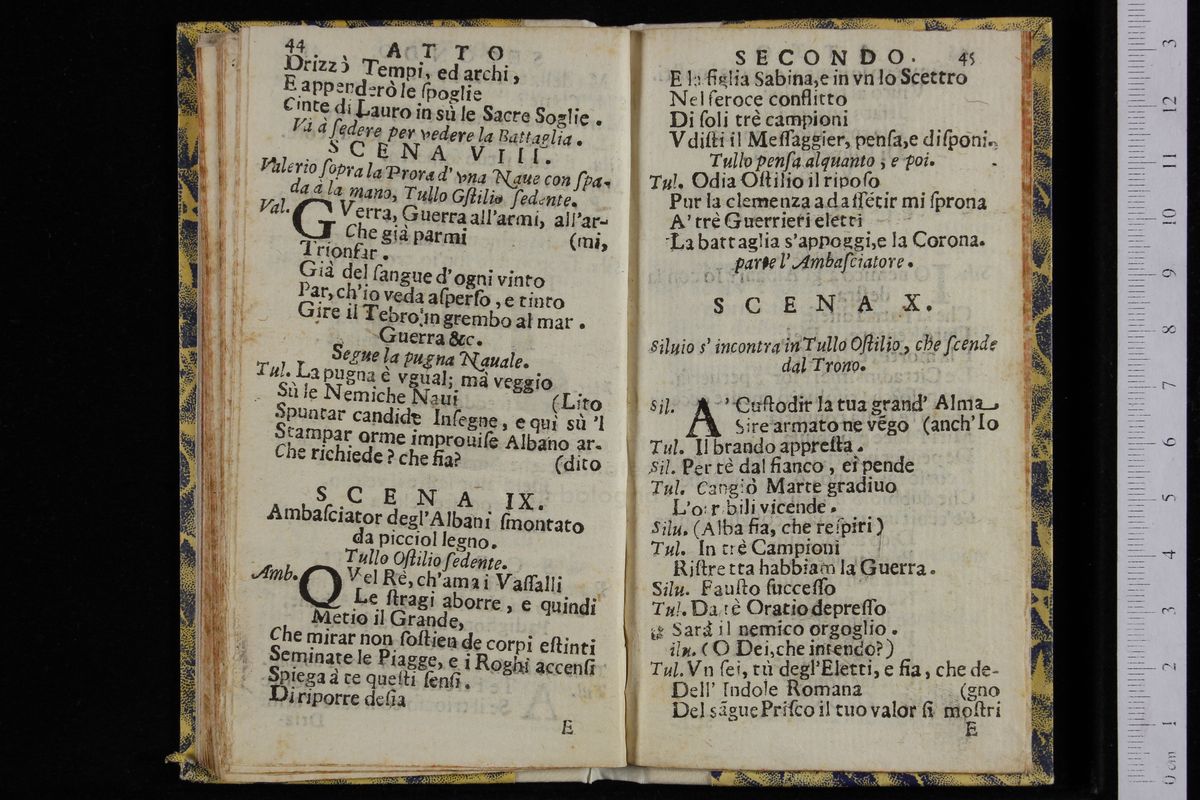 44 ATTO
Drizzò Tempi, ed archi,
E appenderò le ſpoglie
Cinte di Lauro in sù le Sacre Soglie.
Và à ſedere per vedere la Battaglia.
SCENA VIII.
Valerio ſopra la Prora d' vna Naue con ſpa-
da à la mano, Tullo Oſtilio ſedente.
Val. GVerra, Guerra all'armi, all'ar-
Che già parmi (mi,
Trionfar.
Già del ſangue d'ogni vinto
Par, ch'io veda aſperſo, e tinto
Gire il Tebro in grembo al mar.
Guerra &c.
Segue la pugna Nauale.
Tul. La pugna è vgual; mà veggio
Sù le Nemiche Naui (Lito
Spuntar candide Inſegne, e qui sù 'l
Stampar orme improuiſe Albano ar-
Che richiede? che fia? (dito
SCENA IX.
Ambaſciator degl'Albani ſmontato
da picciol legno.
Tullo Oſtilio ſedente.
Amb. QVel Rè, ch'ama i Vaſſalli
Le ſtragi aborre, e quindi
Metio il Grande,
Che mirar non ſoſtien de corpi eſtinti
Seminate le Piagge, e i Roghi accenſi
Spiega à te queſti ſenſi.
Di riporre deſia
E
SECONDO. 45
E la figlia Sabina, e in vn lo Scettro
Nel feroce conflitto
Di ſoli trè campioni
Vdiſti il Meſſaggier, penſa, e diſponi.
Tullo penſa alquanto, e poi.
Tul. Odia Oſtilio il ripoſo
Pur la clemenza ad aſſetir mi ſprona
A' trè Guerrieri eletti
La battaglia s'appoggi, e la Corona.
parte l'Ambaſciatore.
SCENA X.
Siluio s' incontra in Tullo Oſtilio, che ſcende
dal Trono.
Sil. A' Cuſtodir la tua grand' Alma
Sire armato ne vēgo (anch'Io
Tul. Il brando appreſta.
Sil. Per tè dal fianco, ei pende
Tul. Cangiò Marte gradiuo
L'orribili vicende.
Silu. (Alba fia, che reſpiri)
Tul. In trè Campioni
Riſtretta habbiam la Guerra.
Silu. Fauſto ſucceſſo
Tul. Da tè Oratio depreſſo
Sarà il nemico orgoglio.
ilu. (O Dei, che intendo?)
Tul. Vn ſei, tù degl'Eletti, e fia, che de-
Dell' Indole Romana (gno
Del sāgue Priſco il tuo valor ſi moſtri
E